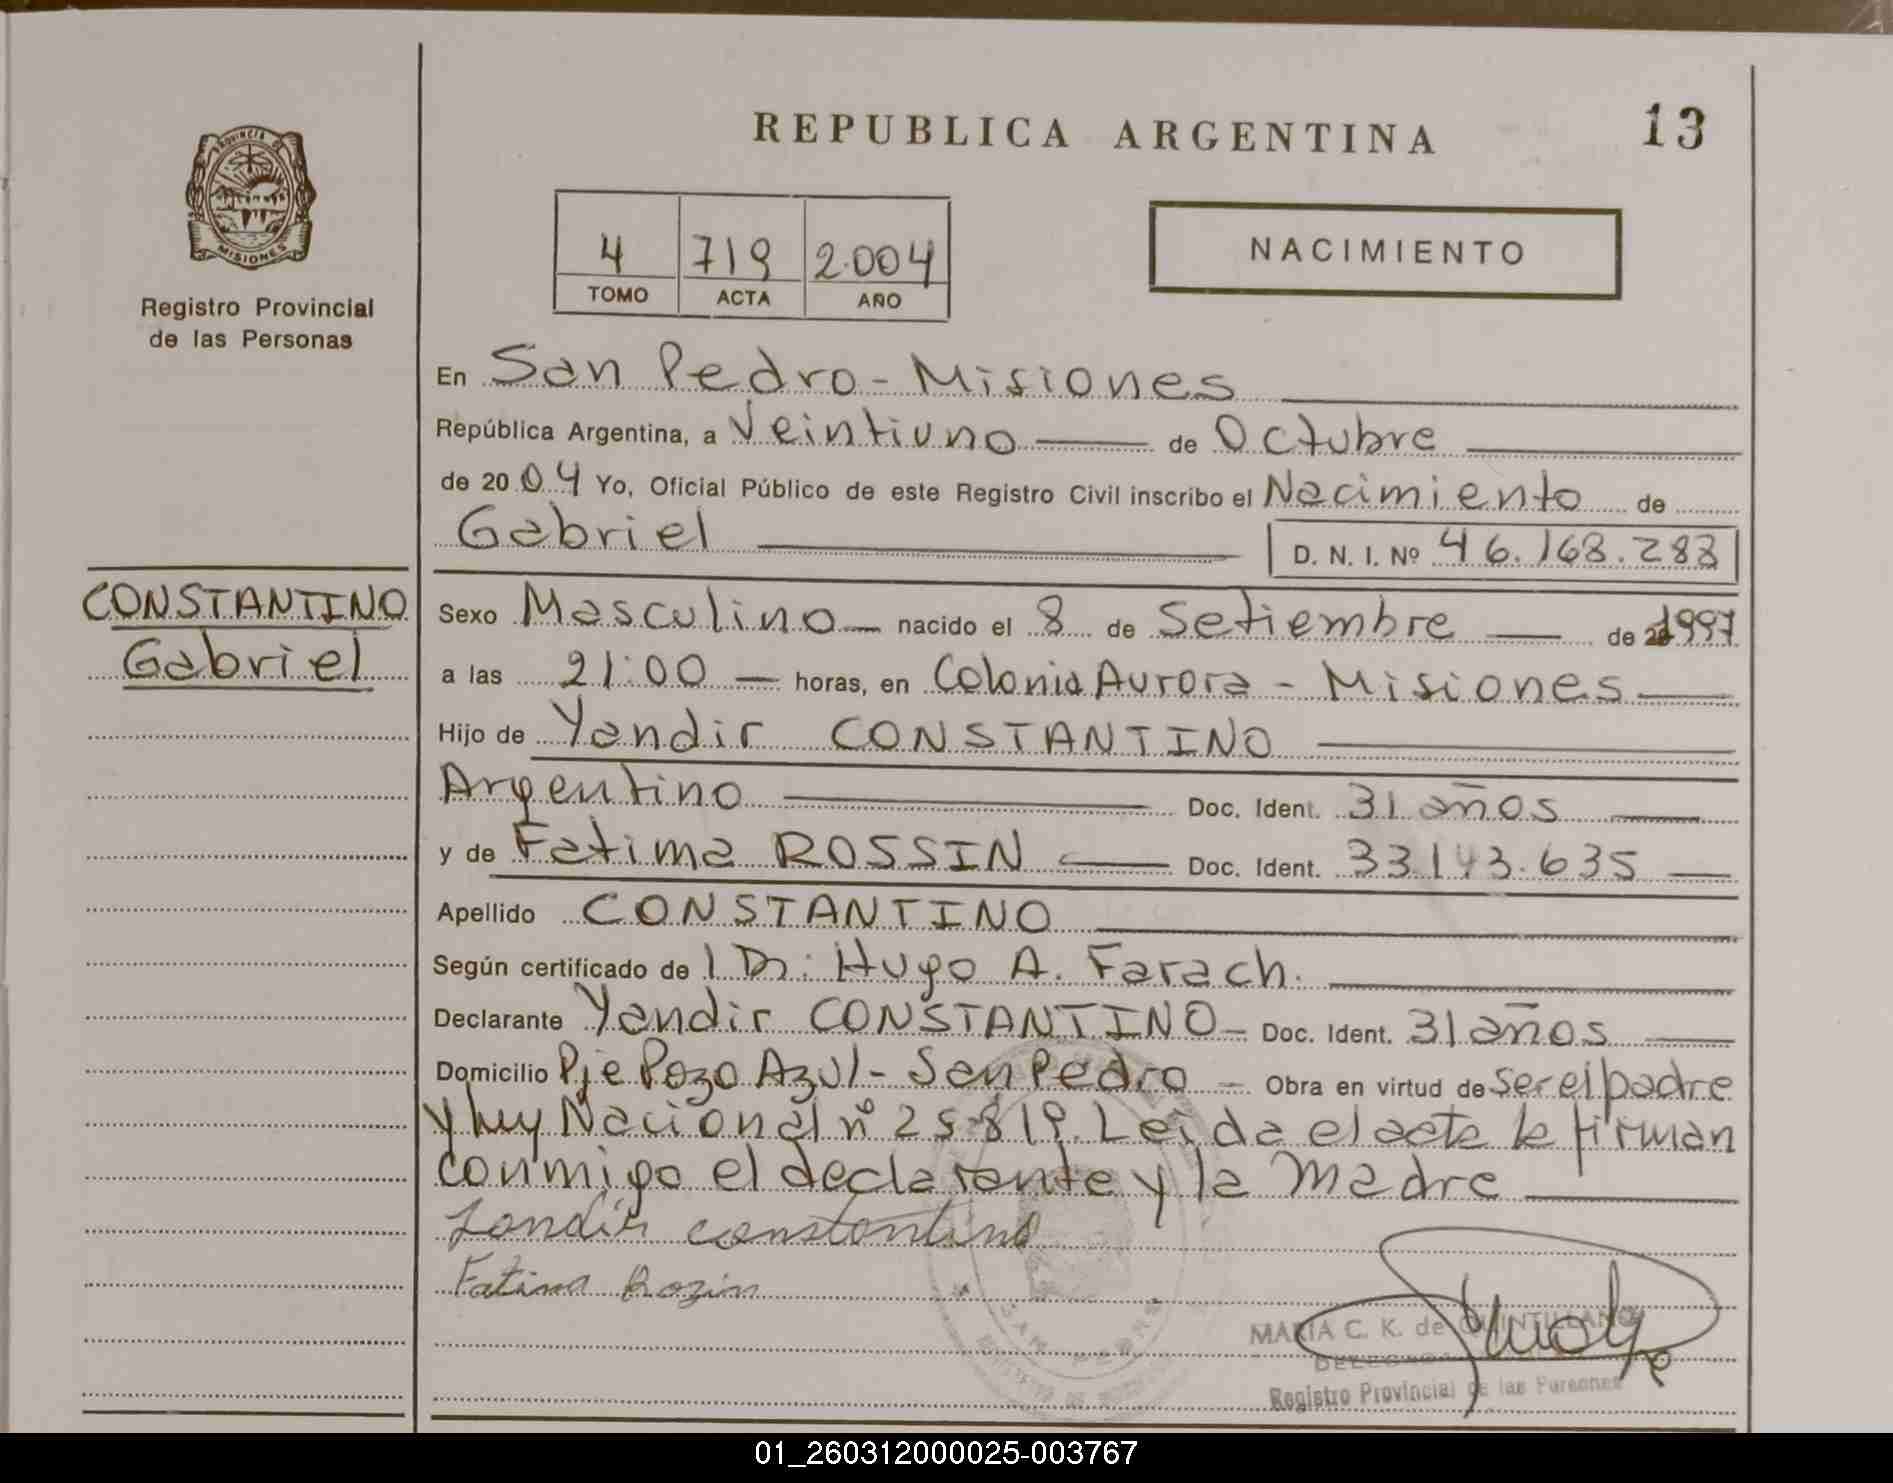 REPUBLICA ARGENTINA
13
PROVINCIA DE
MISIONES
Registro Provincial
de las Personas
4 719 2.004
TOMO ACTA AÑO
NACIMIENTO
En San Pedro - Misiones
República Argentina, a Veintiuno de Octubre
de 2004 Yo, Oficial Público de este Registro Civil inscribo el Nacimiento de
Gabriel D. N. I. Nº 46.168.288
CONSTANTINO
Gabriel
Sexo Masculino nacido el 8 de Setiembre de 1997
a las 21:00 horas, en Colonia Aurora - Misiones
Hijo de Yandir CONSTANTINO
Argentino Doc. Ident. 31 años
y de Fatima ROSSIN Doc. Ident. 33.143.635
Apellido CONSTANTINO
Según certificado de 1 Dr: Hugo A. Farach.
Declarante Yandir CONSTANTINO - Doc. Ident. 31 años
Domicilio Pje Pozo Azul - San Pedro - Obra en virtud de ser el padre
y ley Nacional nº 25.819. Leída el acta la firman
conmigo el declarante y la Madre
Landir constantino
Fatima Rozin
SAN PEDRO
MARIA C. K. de QUINTILLANO
DELEGADA
Registro Provincial de las Personas
01_260312000025-003767